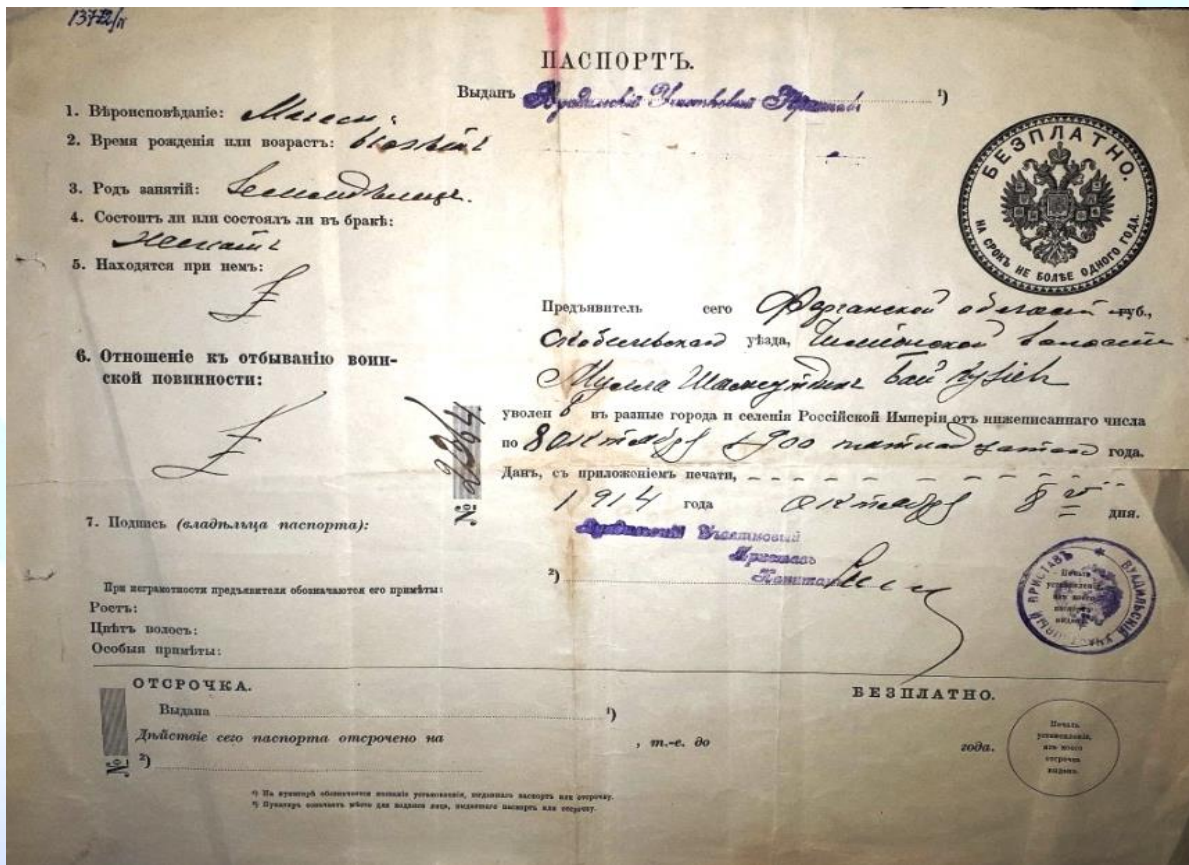 ПАСПОРТЪ.
Выданъ Вуадильскій Участковый Приставъ ¹)
1. Вѣроисповѣданіе:
2. Время рожденія или возрастъ:
3. Родъ занятій:
4. Состоитъ ли или состоялъ ли въ бракѣ:
женатъ
5. Находятся при немъ:
6. Отношеніе къ отбыванію воин-
ской повинности:
7. Подпись (владѣльца паспорта):
При неграмотности предъявителя обозначаются его примѣты:
Ростъ:
Цвѣтъ волосъ:
Особыя примѣты:
БЕЗПЛАТНО.
НА СРОКЪ НЕ БОЛѢЕ ОДНОГО ГОДА.
Предъявитель сего Ферганской области губ.,
Скобелевскаго уѣзда, волости
Мулла
уволен въ разные города и селенія Россійской Имперіи отъ нижеписаннаго числа
по 8 октября 1900 пятнадцатаго года.
Данъ, съ приложеніемъ печати,
1914 года октября 8 дня.
№
Вуадильскій Участковый
Приставъ
²)
ВУАДИЛЬСКІЙ УЧАСТКОВЫЙ ПРИСТАВЪ
Печать
установленія,
изъ коего
паспортъ
выданъ.
ОТСРОЧКА.
БЕЗПЛАТНО.
Выдана ¹)
Дѣйствіе сего паспорта отсрочено на , т.-е. до года.
№ ²)
Печать
установленія,
изъ коего
отсрочка
выдана.
¹) На пунктирѣ обозначается названіе установленія, выдавшаго паспортъ или отсрочку.
²) Пунктиръ означаетъ мѣсто для подписи лица, выдавшаго паспортъ или отсрочку.